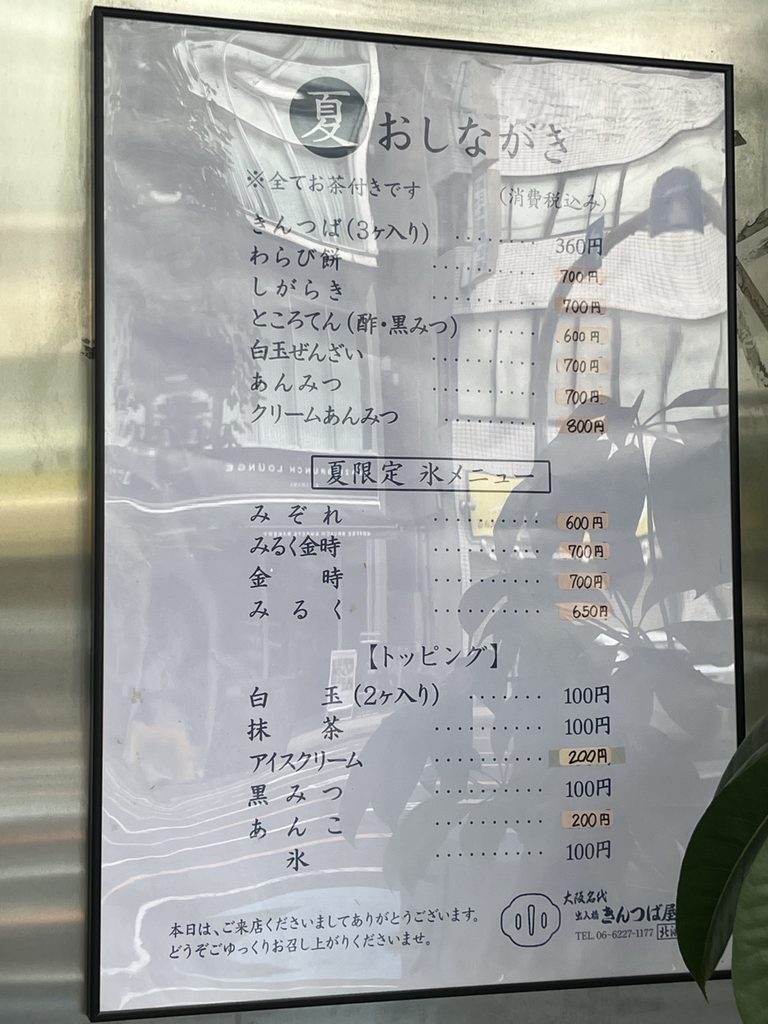 夏 おしながき
※全てお茶付きです (消費税込み)
きんつば(3ヶ入り) ·········· 360円
わらび餅 ·········· 700円
しがらき ·········· 700円
ところてん(酢・黒みつ) ······ 600円
白玉ぜんざい ·········· 700円
あんみつ ·········· 700円
クリームあんみつ ·········· 800円
夏限定 氷メニュー
みぞれ ·········· 600円
みるく金時 ·········· 700円
金時 ·········· 700円
みるく ·········· 650円
【トッピング】
白玉(2ヶ入り) ······· 100円
抹茶 ·········· 100円
アイスクリーム ·········· 200円
黒みつ ·········· 100円
あんこ ·········· 200円
氷 ·········· 100円
本日は、ご来店くださいましてありがとうございます。
どうぞごゆっくりお召し上がりくださいませ。
大阪名代
出入橋 きんつば屋
TEL 06-6227-1177